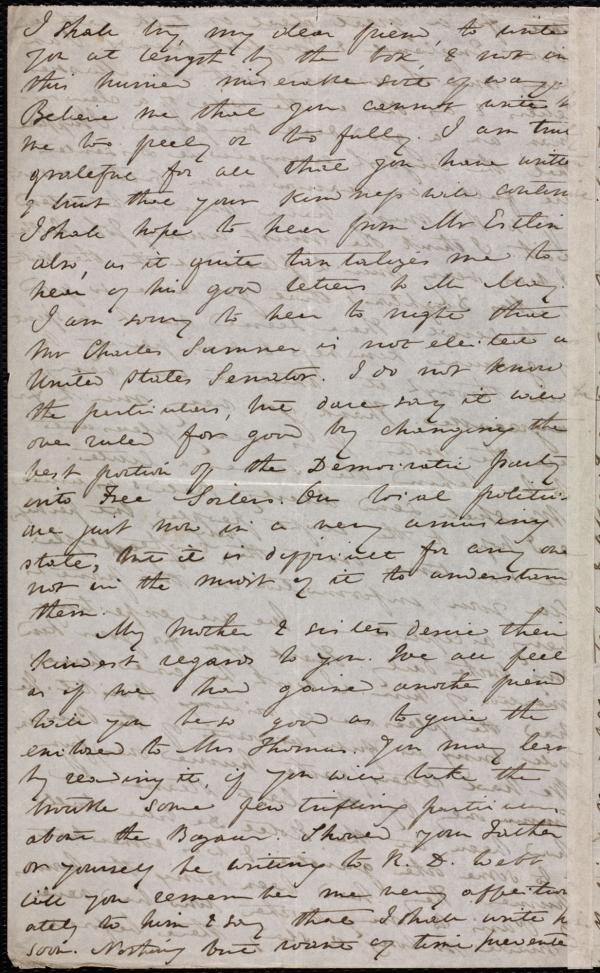 I shall try, my dear friend, to write
you at length by the box, & not in
this hurried miserable sort of way.
Believe me that you cannot write to
me too freely or too fully. I am truly
grateful for all that you have written
& trust that your kindness will continue
I shall hope to hear from Mr Estlin
also, as it quite tantalizes me to
hear of his good letters to Mr May.
I am sorry to hear to night that
Mr Charles Sumner is not elected a
United States Senator. I do not know
the particulars, but dare say it will
over ruled for good by changing the
best portion of the Democratic party
into Free Soilers. Our local politics
are just now in a very amusing
state, but it is difficult for any one
not in the midst of it to understand
them.
My Mother & sisters desire their
kindest regards to you. We all feel
as if we had gained another friend
Will you be so good as to give the
enclosed to Mrs Thomas. You may learn
by reading it, if you will take the
trouble some few trifling particulars
about the Bazaar. Should your Father
or yourself be writing to R. D. Webb
will you remember me very affection
ately to him & say that I shall write h
soon. Nothing but want of time prevented